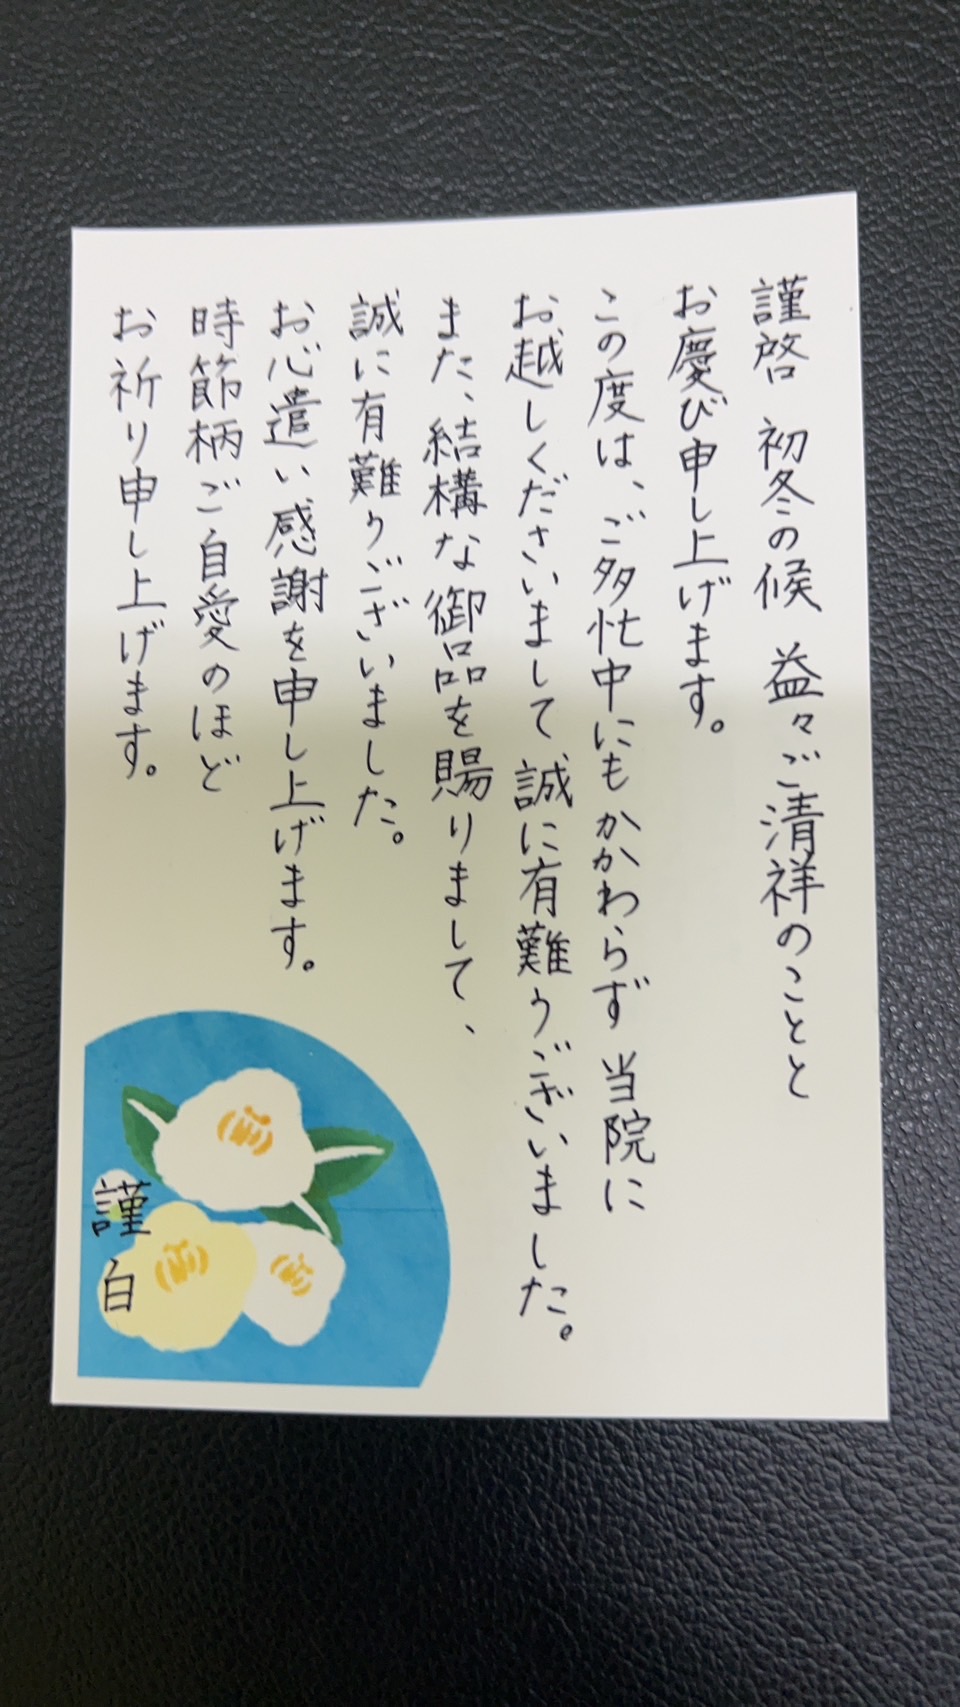 謹啓 初冬の候 益々ご清祥のことと
お慶び申し上げます。
この度は、ご多忙中にもかかわらず 当院に
お越しくださいまして 誠に有難うございました。
また、結構な御品を賜りまして、
誠に有難うございました。
お心遣い感謝を申し上げます。
時節柄ご自愛のほど
お祈り申し上げます。
謹白